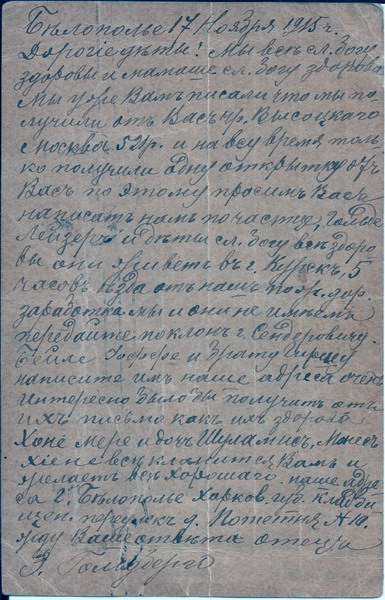 Бѣлополье 17 Ноября 1915 г.
Дорогіе дѣты! Мы всѣ сл. Богу
здоровы и мамаше сл. Богу здорова
Мы уже Вамъ писали что мы по-
лучили отъ Васъ чр. Высоцкаго
с Москва 52 р. и на всу время толь-
ко получили одну открытку отъ
Васъ по этому просимъ Васъ
написать намъ почастее, Гольде
Лейзеръ и дѣты сл. Богу всѣ здоро-
вы они живетъ въ г. Курск, 5
часовъ ѣзда отъ насъ
заработка мы и они не имѣемъ
передайте поклонъ г. Сендеровичу
Бейле и брату Гиршу
напишите имъ наше адреса очень
интересно было бы получить отъ
ихъ письмо какъ ихъ здоровъ
Хоне мере и дочь Шуламис,
всѣ кланится Вамъ и
желаетъ всѣ хорошаго. наше адре
са г. Бѣлополье Харков. губ. кладби
щен. переулок д. Пототня N 10.
жду Ваше ответа отецъ
Голцберг